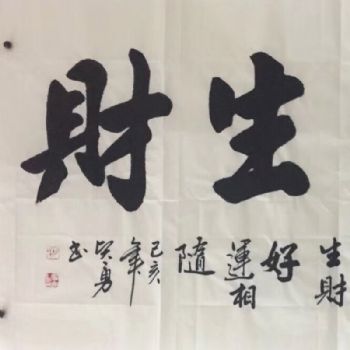 生財
生財好運相隨
己亥年吳勇书